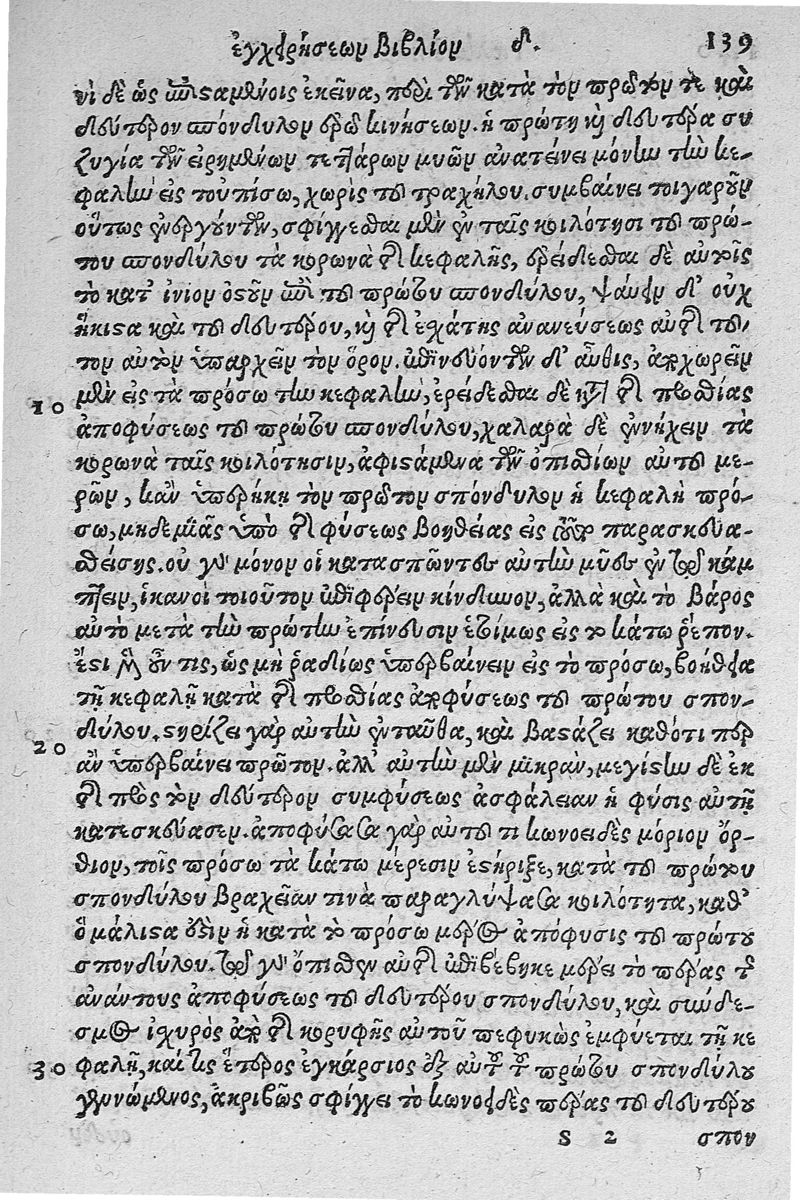 ἐγχειρήσεων Βιβλίον δ. 139
νὶ δὲ ὡς ἐπισαμένοις ἐκεῖνα, περὶ τῶν κατὰ τὸν πρῶτον τε καὶ
δεύτερον σπόνδυλον ἐρῶ κινήσεων. ἡ πρώτη καὶ δευτέρα συ
ζυγία τῶν εἰρημένων τεττάρων μυῶν ἀνατείνει μόνην τὴν κε-
φαλὴν εἰς τουπίσω, χωρὶς τοῦ τραχήλου. συμβαίνει τοιγαροῦν
οὕτως ἐνεργούντων, σφίγγεσθαι μὲν ἐν ταῖς κοιλότησι τοῦ πρώ-
του σπονδύλου τὰ κορωνὰ τῆς κεφαλῆς, ἐρείδεσθαι δὲ αὐτοῖς
τὸ κατ᾽ ἰνίον ὀστοῦν ἐπὶ τοῦ πρώτου σπονδύλου, ψαύειν δ᾽ οὐχ
ἥκιστα καὶ τοῦ δευτέρου, καὶ τῆς ἐσχάτης ἀνανεύσεως αὐτῆς τοῦ-
τον αὐτὸν ὑπαρχεῖν τὸν ὅρον. ἐπινευόντων δ᾽ αὖθις, ἀποχωρεῖν
10 μὲν εἰς τὰ πρόσω τὴν κεφαλὴν, ἐρείδεσθαι δὲ κατὰ τῆς προσθίας
ἀποφύσεως τοῦ πρώτου σπονδύλου, χαλαρὰ δὲ ἐννήχειν τὰ
κορωνὰ ταῖς κοιλότησιν, ἀφιστάμενα τῶν ὀπισθίων αὐτοῦ με-
ρῶν, κἂν ὑπερήκῃ τὸν πρῶτον σπόνδυλον ἡ κεφαλὴ πρό-
σω, μηδεμιᾶς ὑπὸ τῆς φύσεως βοηθείας εἰς τοῦτο παρασκευα-
σθείσης. οὐ γὰρ μόνον οἱ κατασπῶντες αὐτὴν μῦες ἐν τῷ κάμ
πτειν, ἱκανοὶ τοιοῦτον ἐπιφέρειν κίνδυνον, ἀλλὰ καὶ τὸ βάρος
αὐτὸ μετὰ τὴν πρώτην ἐπίνευσιν ἑτοίμως εἰς τὸ κάτω ῥέπον.
ἔστι μὲν οὖν τις, ὡς μὴ ῥαδίως ὑπερβαίνειν εἰς τὸ πρόσω, βοήθεια
τῇ κεφαλῇ κατὰ τῆς προσθίας ἀποφύσεως τοῦ πρώτου σπον-
δύλου. στηρίζει γὰρ αὐτὴν ἐνταῦθα, καὶ βαστάζει καθότι περ
20 ἂν ὑπερβαίνει πρῶτον. ἀλλ᾽ αὐτὴν μὲν μικρὰν, μεγίστην δὲ ἐκ
τῆς πρὸς τὸν δεύτερον συμφύσεως ἀσφάλειαν ἡ φύσις αὐτῇ
κατεσκεύασεν. ἀποφύσασα γὰρ αὐτοῦ τι κωνοειδὲς μόριον ὄρ-
θιον, τοῖς πρόσω τὰ κάτω μέρεσιν ἐστήριξε, κατὰ τοῦ πρώτου
σπονδύλου βραχεῖαν τινὰ παραγλύψασα κοιλότητα, καθ᾽
ὃ μάλιστα ἐστὶν ἡ κατὰ τὸ πρόσω μέρος ἀπόφυσις τοῦ πρώτου
σπονδύλου. τῷ γὰρ ὄπισθεν αὐτῆς ἐπιβέβηκε μέρει τὸ πέρας τῆς
ἀνάντους ἀποφύσεως τοῦ δευτέρου σπονδύλου, καὶ σύνδε-
σμος ἰσχυρὸς ἀπὸ τῆς κορυφῆς αὐτοῦ πεφυκὼς ἐμφύεται τῇ κε
30 φαλῇ, καί τις ἕτερος ἐγκάρσιος ἐξ αὐτοῦ τοῦ πρώτου σπονδύλου
γεννώμενος, ἀκριβῶς σφίγγει τὸ κωνοειδὲς πέρας τοῦ δευτέρου
S 2 σπον